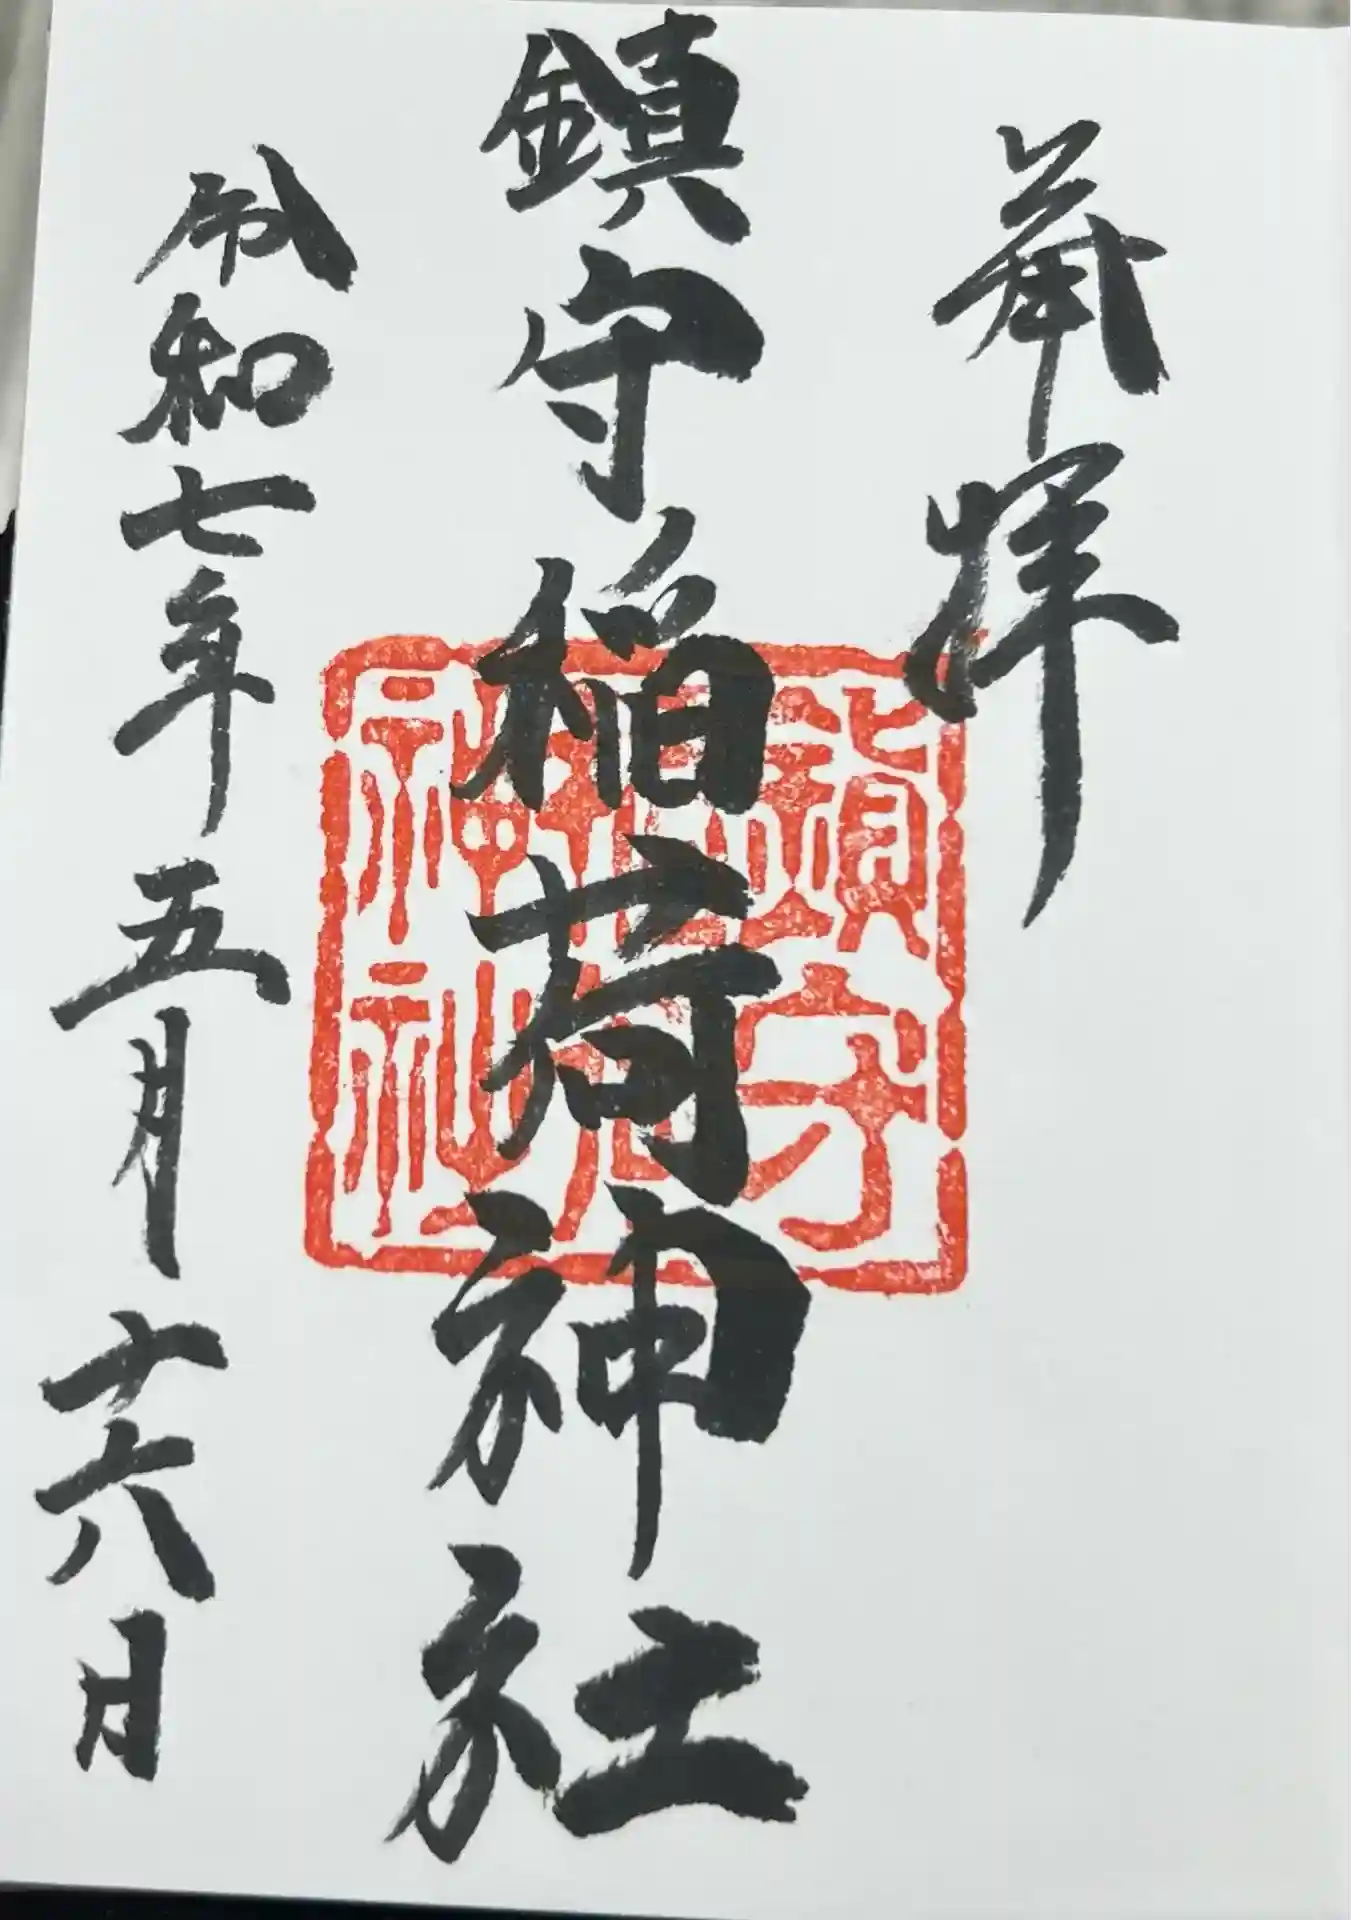 奉拝
鎮守稲荷神社
鎮守稲荷神社
令和七年五月十六日